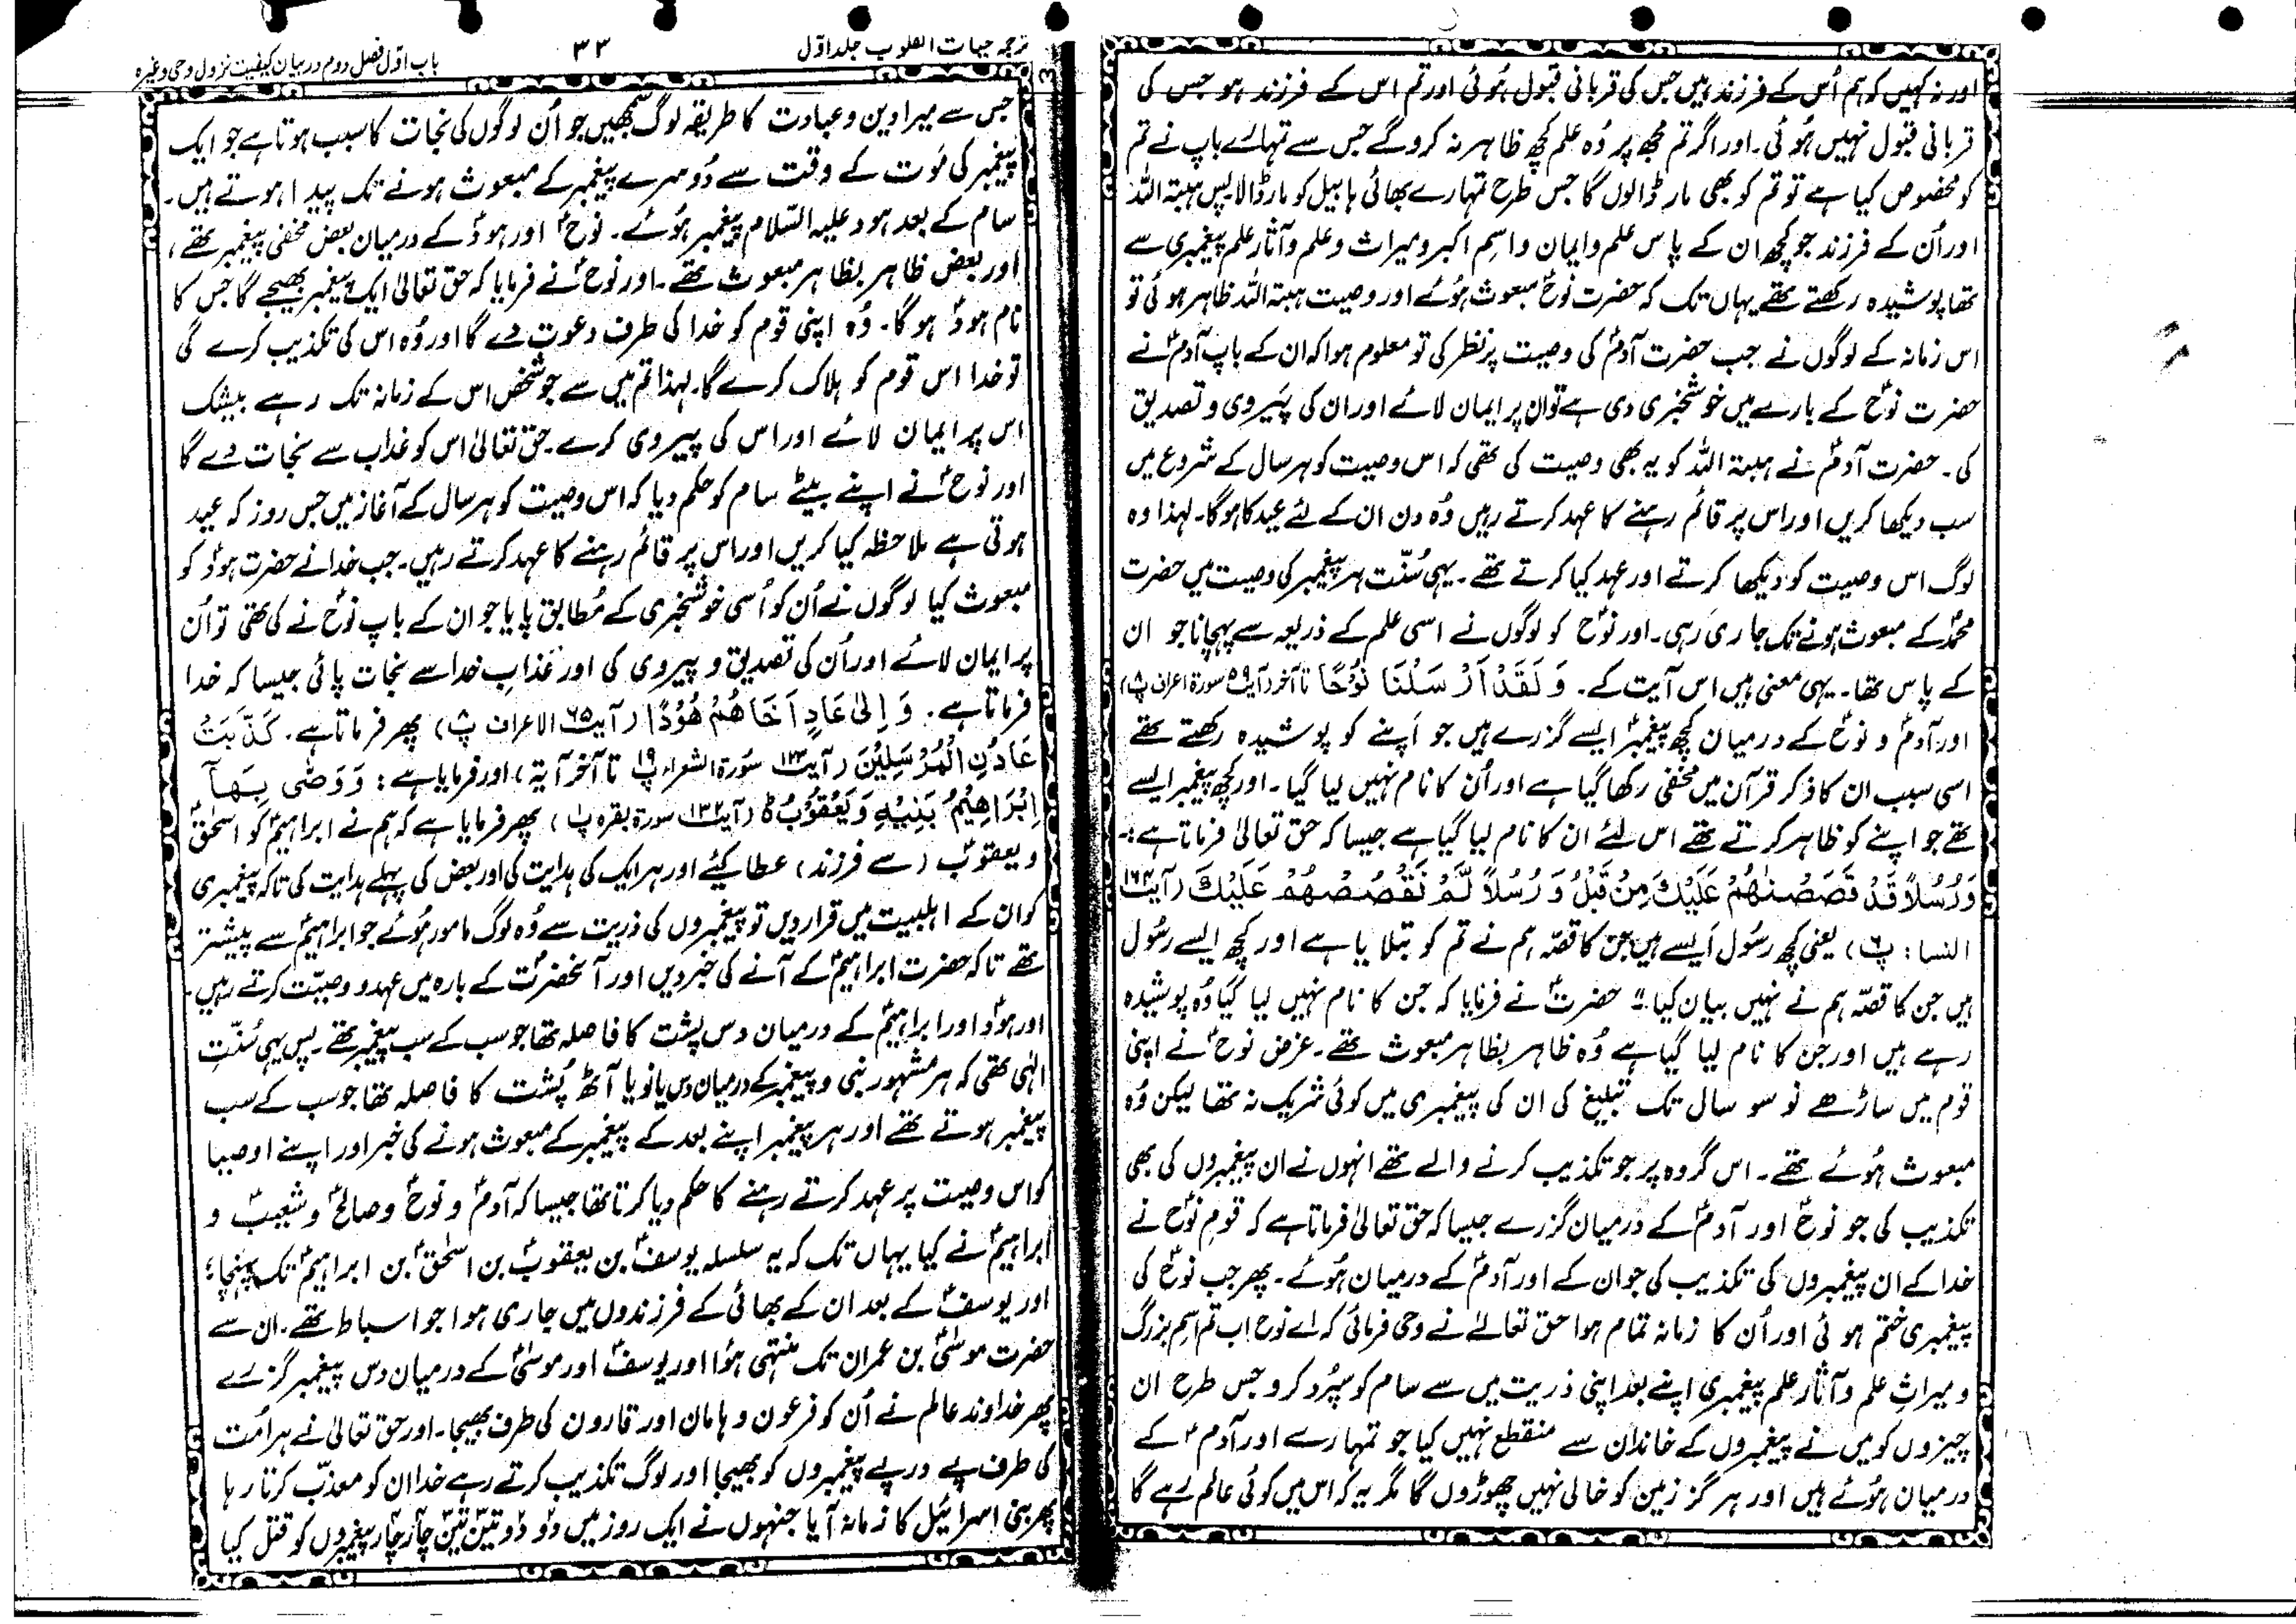 اور نہ کہیں کہ ہم اُس کے فرزند ہیں جس کی قربانی قبول ہُوئی اور تم اس کے فرزند ہو جس کی
قربانی قبول نہیں ہُوئی۔ اور اگر تم مجھ پر وُہ علم کچھ ظاہر نہ کرو گے جس سے تمہارے باپ نے تم
کو مخصوص کیا ہے تو تم کو بھی مار ڈالوں گا جس طرح تمہارے بھائی ہابیل کو مار ڈالا۔ پس ہبتہ اللہ
اور اُن کے فرزند جو کچھ ان کے پاس علم و ایمان و اسِم اکبر و میراث و علم و آثار علم پیغمبری سے
تھا پوشیدہ رکھتے تھے یہاں تک کہ حضرت نوحؑ مبعوث ہُوئے اور وصیت ہبتہ اللہ ظاہر ہوئی تو
اس زمانہ کے لوگوں نے جب حضرت آدمؑ کی وصیت پر نظر کی تو معلوم ہوا کہ ان کے باپ آدمؑ نے
حضرت نوحؑ کے بارے میں خوشخبری دی ہے تو ان پر ایمان لائے اور ان کی پَیروی و تصدیق
کی۔ حضرت آدمؑ نے ہبتہ اللہ کو یہ بھی وصیت کی تھی کہ اس وصیت کو ہر سال کے شروع میں
سب دیکھا کریں اور اس پر قائم رہنے کا عہد کرتے رہیں وُہ دن ان کے لئے عید کا ہوگا۔ لہذا وہ
لوگ اس وصیت کو دیکھا کرتے اور عہد کیا کرتے تھے۔ یہی سُنّت ہر پیغمبر کی وصیت میں حضرت
محمدؐ کے مبعوث ہونے تک جاری رہی۔ اور نوحؑ کو لوگوں نے اسی علم کے ذریعہ سے پہچانا جو ان
کے پاس تھا۔ یہی معنی ہیں اس آیت کے۔ وَلَقَدْ اَرْسَلْنَا نُوْحًا تا آخر (آیت ۵۹ سورۃ اعراف پ۸)
اور آدمؑ و نوحؑ کے درمیان کچھ پیغمبر ایسے گزرے ہیں جو اَپنے کو پوشیدہ رکھتے تھے
اسی سبب ان کا ذکر قرآن میں مخفی رکھا گیا ہے اور اُن کا نام نہیں لیا گیا۔ اور کچھ پیغمبر ایسے
تھے جو اپنے کو ظاہر کرتے تھے اس لئے ان کا نام لیا گیا ہے جیسا کہ حق تعالیٰ فرماتا ہے:۔
وَرُسُلاً قَدْ قَصَصْنٰھُمْ عَلَیْکَ مِنْ قَبْلُ وَ رُسُلاً لَّمْ نَقْصُصْھُمْ عَلَیْکَ (آیت ۱۶۴
النسا: پ۶) یعنی کچھ رسُول اَیسے ہیں جن کا قصّہ ہم نے تم کو بتلایا ہے اور کچھ ایسے رسُول
ہیں جن کا قصّہ ہم نے نہیں بیان کیا۔" حضرتؑ نے فرمایا کہ جن کا نام نہیں لیا گیا وُہ پوشیدہ
رہے ہیں اور جن کا نام لیا گیا ہے وُہ ظاہر بظاہر مبعوث تھے۔ غرض نوحؑ نے اپنی
قوم میں ساڑھے نو سو سال تک تبلیغ کی ان کی پیغمبری میں کوئی شریک نہ تھا لیکن وُہ
مبعوث ہُوئے تھے۔ اس گروہ پر جو تکذیب کرنے والے تھے انہوں نے ان پیغمبروں کی بھی
تکذیب کی جو نوحؑ اور آدمؑ کے درمیان گزرے جیسا کہ حق تعالیٰ فرماتا ہے کہ قومِ نوحؑ نے
خدا کے ان پیغمبروں کی تکذیب کی جو ان کے اور آدمؑ کے درمیان ہُوئے۔ پھر جب نوحؑ کی
پیغمبری ختم ہوئی اور اُن کا زمانہ تمام ہوا حق تعالےٰ نے وحی فرمائی کہ اے نوح اب تم اسِم بزرگ
و میراثِ علم و آثار علم پیغمبری اپنے بعد اپنی ذریت میں سے سام کو سپُرد کرو جس طرح ان
چیزوں کو میں نے پیغمبروں کے خاندان سے منقطع نہیں کیا جو تمہارے اور آدمؑ کے
درمیان ہُوئے ہیں اور ہرگز زمین کو خالی نہیں چھوڑوں گا مگر یہ کہ اس میں کوئی عالم رہے گا
ترجمہ حیات القلوب جلد اوّل
۳۳
باب اوّل فصل دوم در بیان کیفیت نزول وحی وغیرہ
جس سے میرا دین و عبادت کا طریقہ لوگ سمجھیں جو اُن لوگوں کی نجات کا سبب ہوتا ہے جو ایک
پیغمبر کی مَوت کے وقت سے دُوسرے پیغمبر کے مبعوث ہونے تک پیدا ہوتے ہیں۔
سام کے بعد ہود علیہ السّلام پیغمبر ہُوئے۔ نوحؑ اور ہودؑ کے درمیان بعض مخفی پیغمبر تھے،
اور بعض ظاہر بظاہر مبعوث تھے۔ اور نوحؑ نے فرمایا کہ حق تعالیٰ ایک پیغمبر بھیجے گا جس کا
نام ہودؑ ہوگا۔ وُہ اپنی قوم کو خدا کی طرف دعوت دے گا اور وُہ اس کی تکذیب کرے گی
تو خدا اس قوم کو ہلاک کرے گا۔ لہذا تم میں سے جو شخص اس کے زمانہ تک رہے بیشک
اس پر ایمان لائے اور اس کی پیروی کرے۔ حق تعالیٰ اس کو عذاب سے نجات دے گا
اور نوحؑ نے اپنے بیٹے سام کو حکم دیا کہ اس وصیت کو ہر سال کے آغاز میں جس روز کہ عید
ہوتی ہے ملاحظہ کیا کریں اور اس پر قائم رہنے کا عہد کرتے رہیں۔ جب خدا نے حضرت ہودؑ کو
مبعوث کیا لوگوں نے اُن کو اُسی خوشخبری کے مُطابق پایا جو ان کے باپ نوحؑ نے کی تھی تو اُن
پر ایمان لائے اور اُن کی تصدیق و پیروی کی اور عذابِ خدا سے نجات پائی جیسا کہ خدا
فرماتا ہے۔ وَ اِلیٰ عَادٍ اَخَاھُمْ ھُوْدًا (آیت ۶۵ الاعراف پ۸) پھر فرماتا ہے۔ کَذَّبَتْ
عَادُنِ الْمُرْسَلِیْنَ (آیت ۱۲۳ سورۃ الشعراء پ۱۹ تا آخر آیۃ) اور فرمایا ہے: وَوَصّٰی بِھَآ
اِبْرَاھِیْمُ بَنِیْہِ وَیَعْقُوْبُ ط (آیت ۱۳۲ سورۃ بقرہ پ۱) پھر فرمایا ہے کہ ہم نے ابراہیمؑ کو اسحٰقؑ
و یعقوبؑ (سے فرزند) عطا کیئے اور ہر ایک کی ہدایت کی اور بعض کی پہلے ہدایت کی تاکہ پیغمبری
کو ان کے اہلبیت میں قرار دیں تو پیغمبروں کی ذریت سے وُہ لوگ مامور ہُوئے جو ابراہیمؑ سے پیشتر
تھے تاکہ حضرت ابراہیمؑ کے آنے کی خبر دیں اور آنحضرتؑ کے بارہ میں عہد و وصیّت کرتے رہیں۔
اور ہودؑ اور ابراہیمؑ کے درمیان دس پشت کا فاصلہ تھا جو سب کے سب پیغمبر تھے۔ پس یہی سُنّتِ
الٰہی تھی کہ ہر مشہور نبی و پیغمبر کے درمیان دس یا نو یا آٹھ پُشت کا فاصلہ تھا جو سب کے سب
پیغمبر ہوتے تھے اور ہر پیغمبر اپنے بعد کے پیغمبر کے مبعوث ہونے کی خبر اور اپنے اوصیا
کو اس وصیت پر عہد کرتے رہنے کا حکم دیا کرتا تھا جیسا کہ آدمؑ و نوحؑ و صالحؑ و شعیبؑ و
ابراہیمؑ نے کیا یہاں تک کہ یہ سلسلہ یوسفؑ بن یعقوبؑ بن اسحٰقؑ بن ابراہیمؑ تک پہنچا؛
اور یوسفؑ کے بعد ان کے بھائی کے فرزندوں میں جاری ہوا جو اسباط تھے۔ ان سے
حضرت موسٰیؑ بن عمران تک منتہی ہوُا اور یوسفؑ اور موسٰیؑ کے درمیان دس پیغمبر گزرے
پھر خداوند عالم نے اُن کو فرعون و ہامان اور قارون کی طرف بھیجا۔ اور حق تعالیٰ نے ہر امُت
کی طرف پے در پے پیغمبروں کو بھیجا اور لوگ تکذیب کرتے رہے خدا ان کو معذّب کرتا رہا
پھر بنی اسرائیل کا زمانہ آیا جنہوں نے ایک روز میں دو دو تین تین چار چار پیغمبروں کو قتل کیا